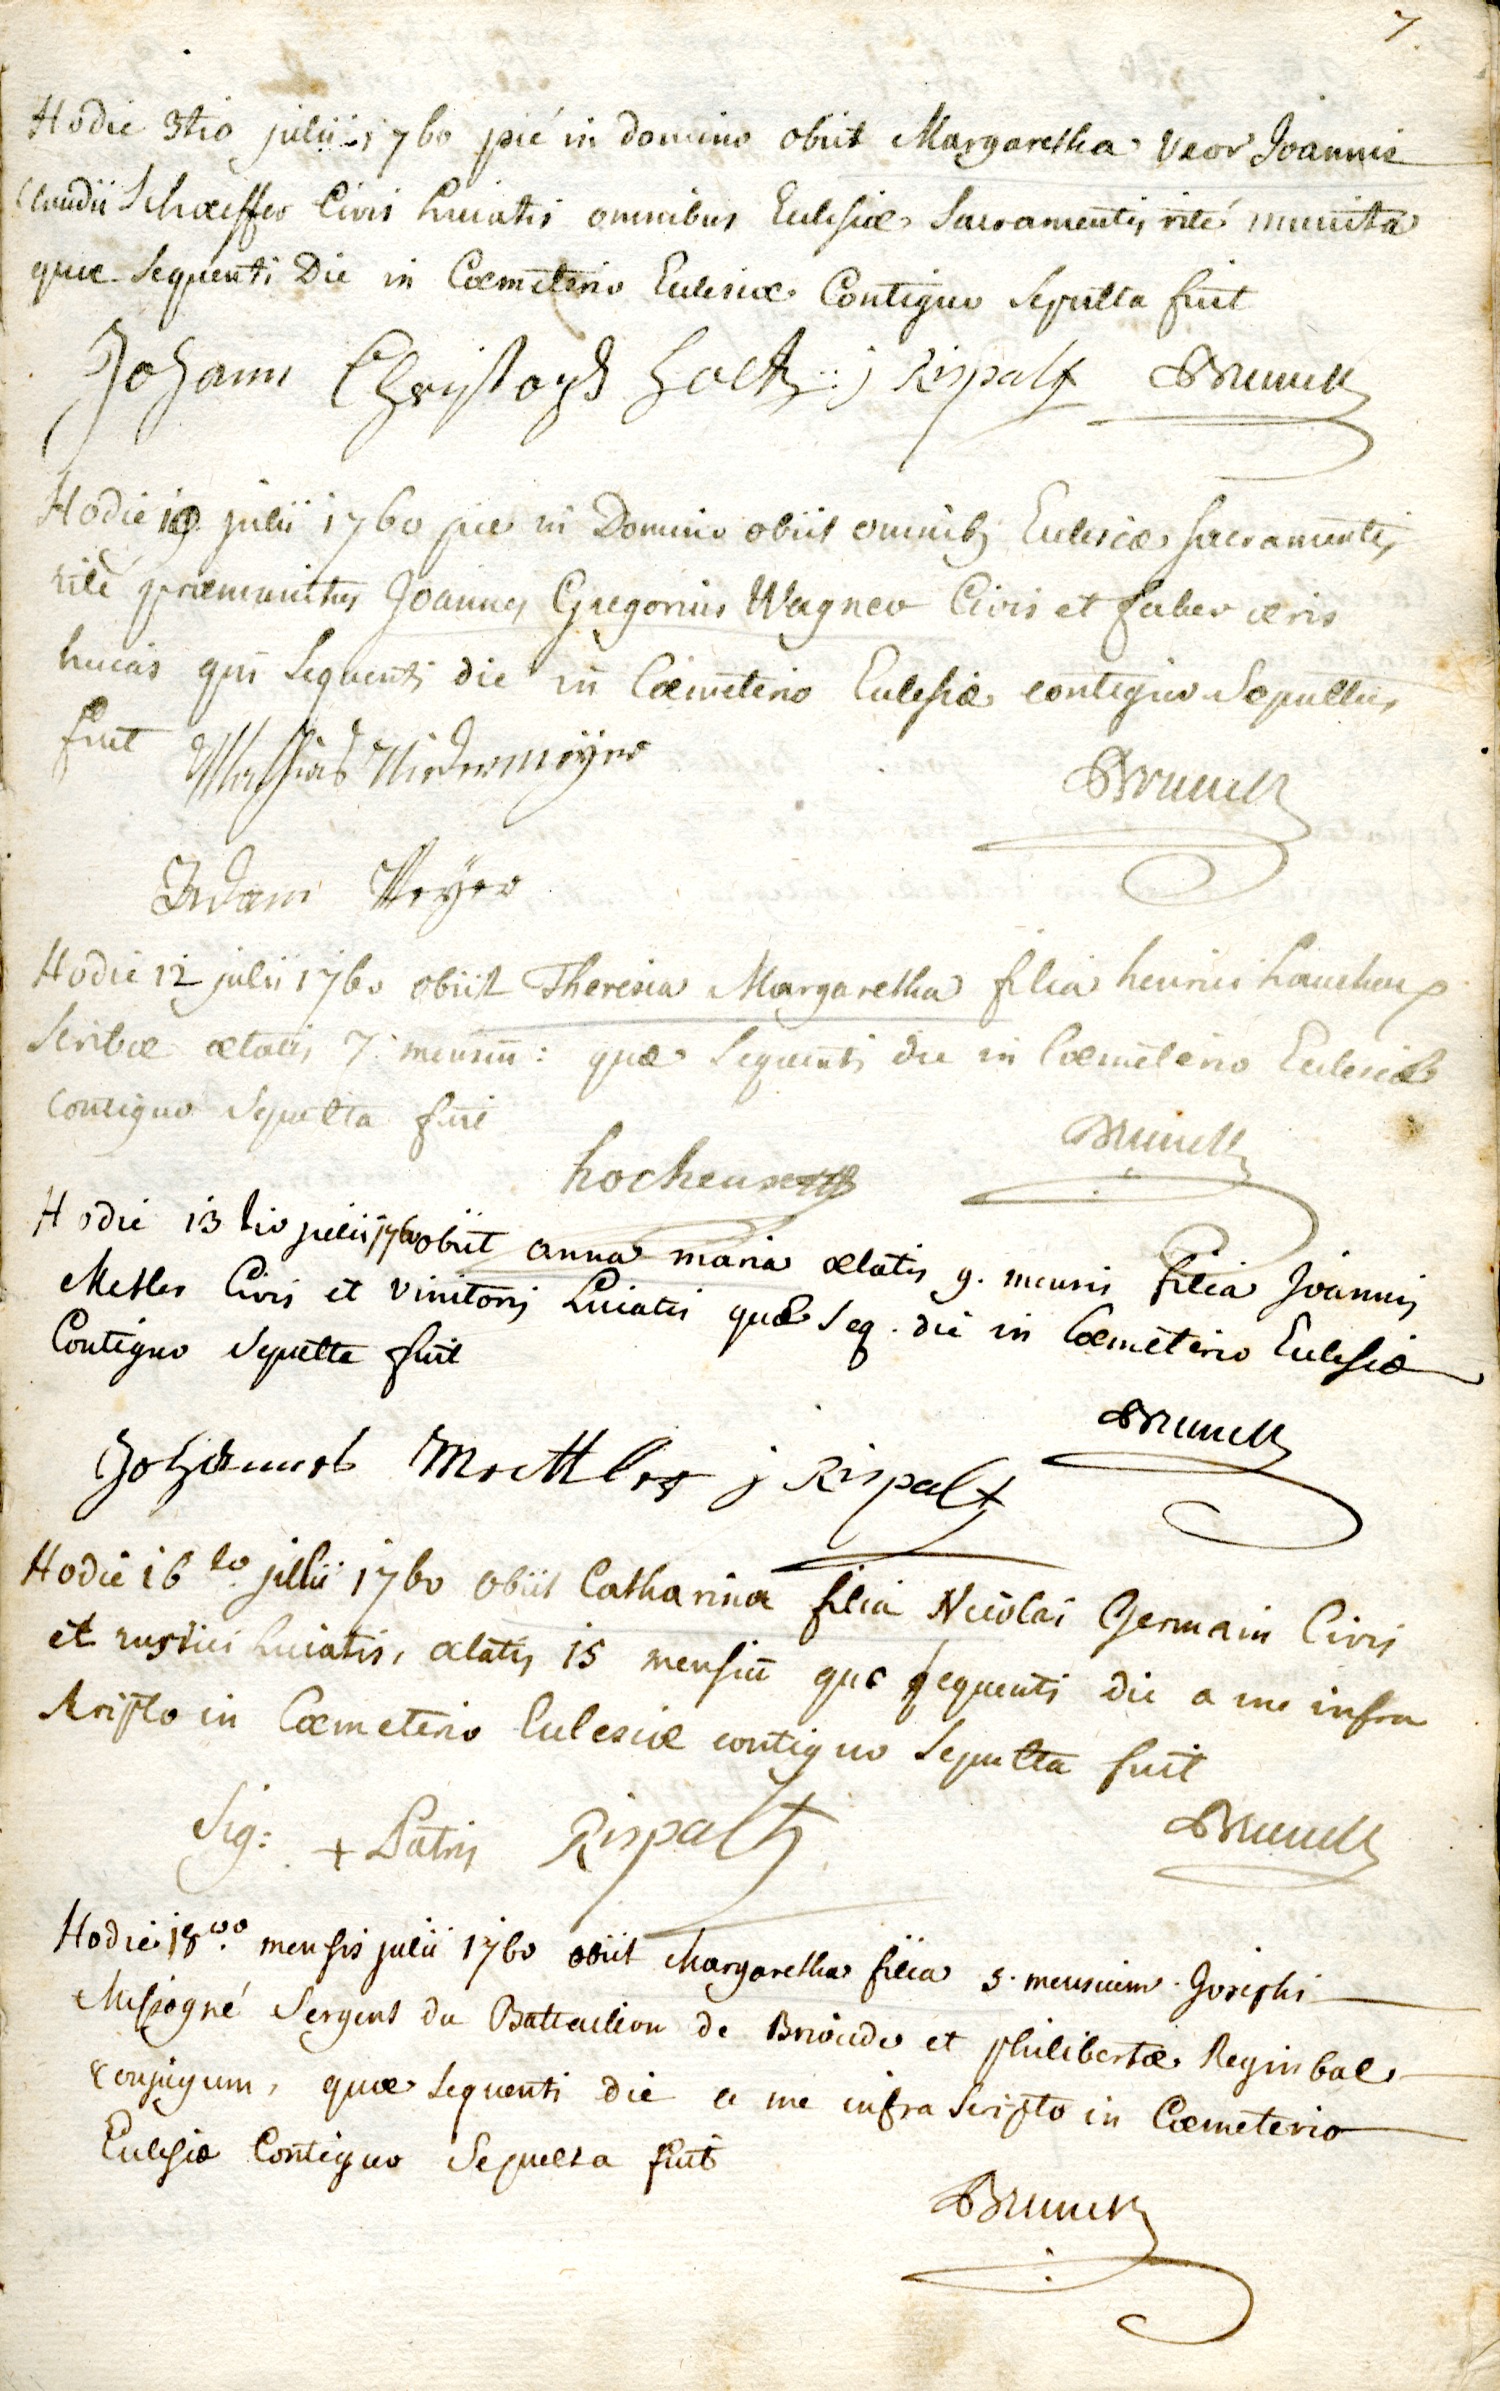 7.
Hodie 3tio julii 1760 pié in domino obiit Margaretha uxor Joannis
Claudii Schaeffer Civis huiatis omnibus Eclesiæ Sacramentis rité munita
quæ Sequenti Die in Cœmeterio Eclesiæ Contiguo Sepulta fuit
Johann Christoph j Rispalt Brunck
Hodie 10 julii 1760 pie in Domino obiit omnib9 Eclesiæ Sacramentis
rité præmunitus Joannes Gregorius Wagner Civis et faber æris
huias qui Sequenti die in Cœmeterio Eclesiæ contiguo Sepultus
fuit Mathias Nidermeÿer Brunck
Adam Meÿer
Hodie 12 julii 1760 obiit Theresia Margaretha filia henrici
Scribæ ætatis 7 mensiū: quæ Sequenti die in Cœmeterio Eclesiæ
contiguo Sepulta fuit Brunck
Hodie 13tio julii 1760 obiit anna maria ætatis 9. mensis filia Joannis
Metler Civis et vinitoris huiatis quæ Seq. die in Cœmeterio Eclesiæ
Contiguo Sepulta fuit Brunck
Johannes Mettler j Rispalt
Hodie 16to julii 1760 obiit Catharina filia Nicolai Germain Civis
et rustici huiatis, ætatis 15 mensiū quæ sequenti die a me infra
scripto in Cœmeterio Eclesiæ contiguo Sepulta fuit
Sig: + Patris Rispalt Brunck
Hodie 18vo mensis julii 1760 obiit Margaretha filia 5. mensium Josephi
Sergent du Battaillon de Brioude et philibertæ Reginbal
conjugum, quæ sequenti die a me infra scripto in Cœmeterio
Eclesiæ Contiguo Sepulta fuit
Brunck